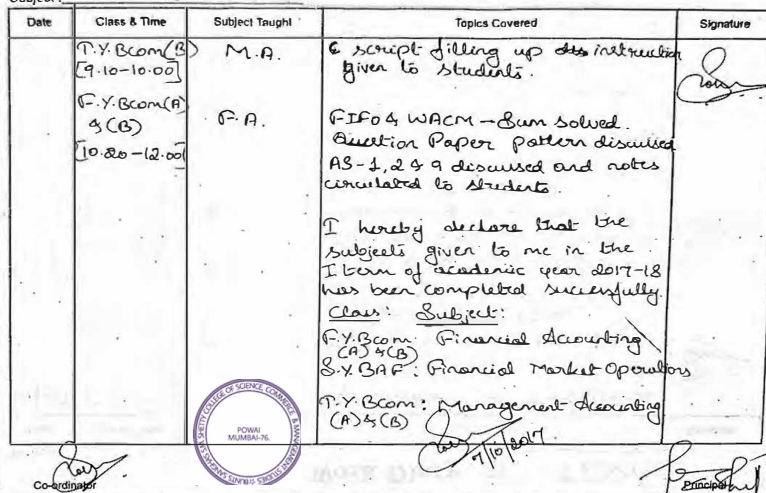 Date Class & Time Subject Taught Topics Covered Signature
T.Y.Bcom(B) M.A. & script filling up instruction
[9.10-10.00] given to students.
F.Y.Bcom(A) F.A. FIFO & WACM - Sum solved.
& (B) Question Paper pattern discussed
[10.20-12.00] AS-1, 2 & 9 discussed and notes
circulated to students.
I hereby declare that the
subjects given to me in the
I term of academic year 2017-18
has been completed successfully.
Class: Subject:
F.Y.Bcom: Financial Accounting
(A) & (B)
S.Y.BAF: Financial Market Operations
T.Y.Bcom: Management Accounting
(A) & (B)
7/10/2017.
POWAI
MUMBAI-76.
Co-ordinator Principal